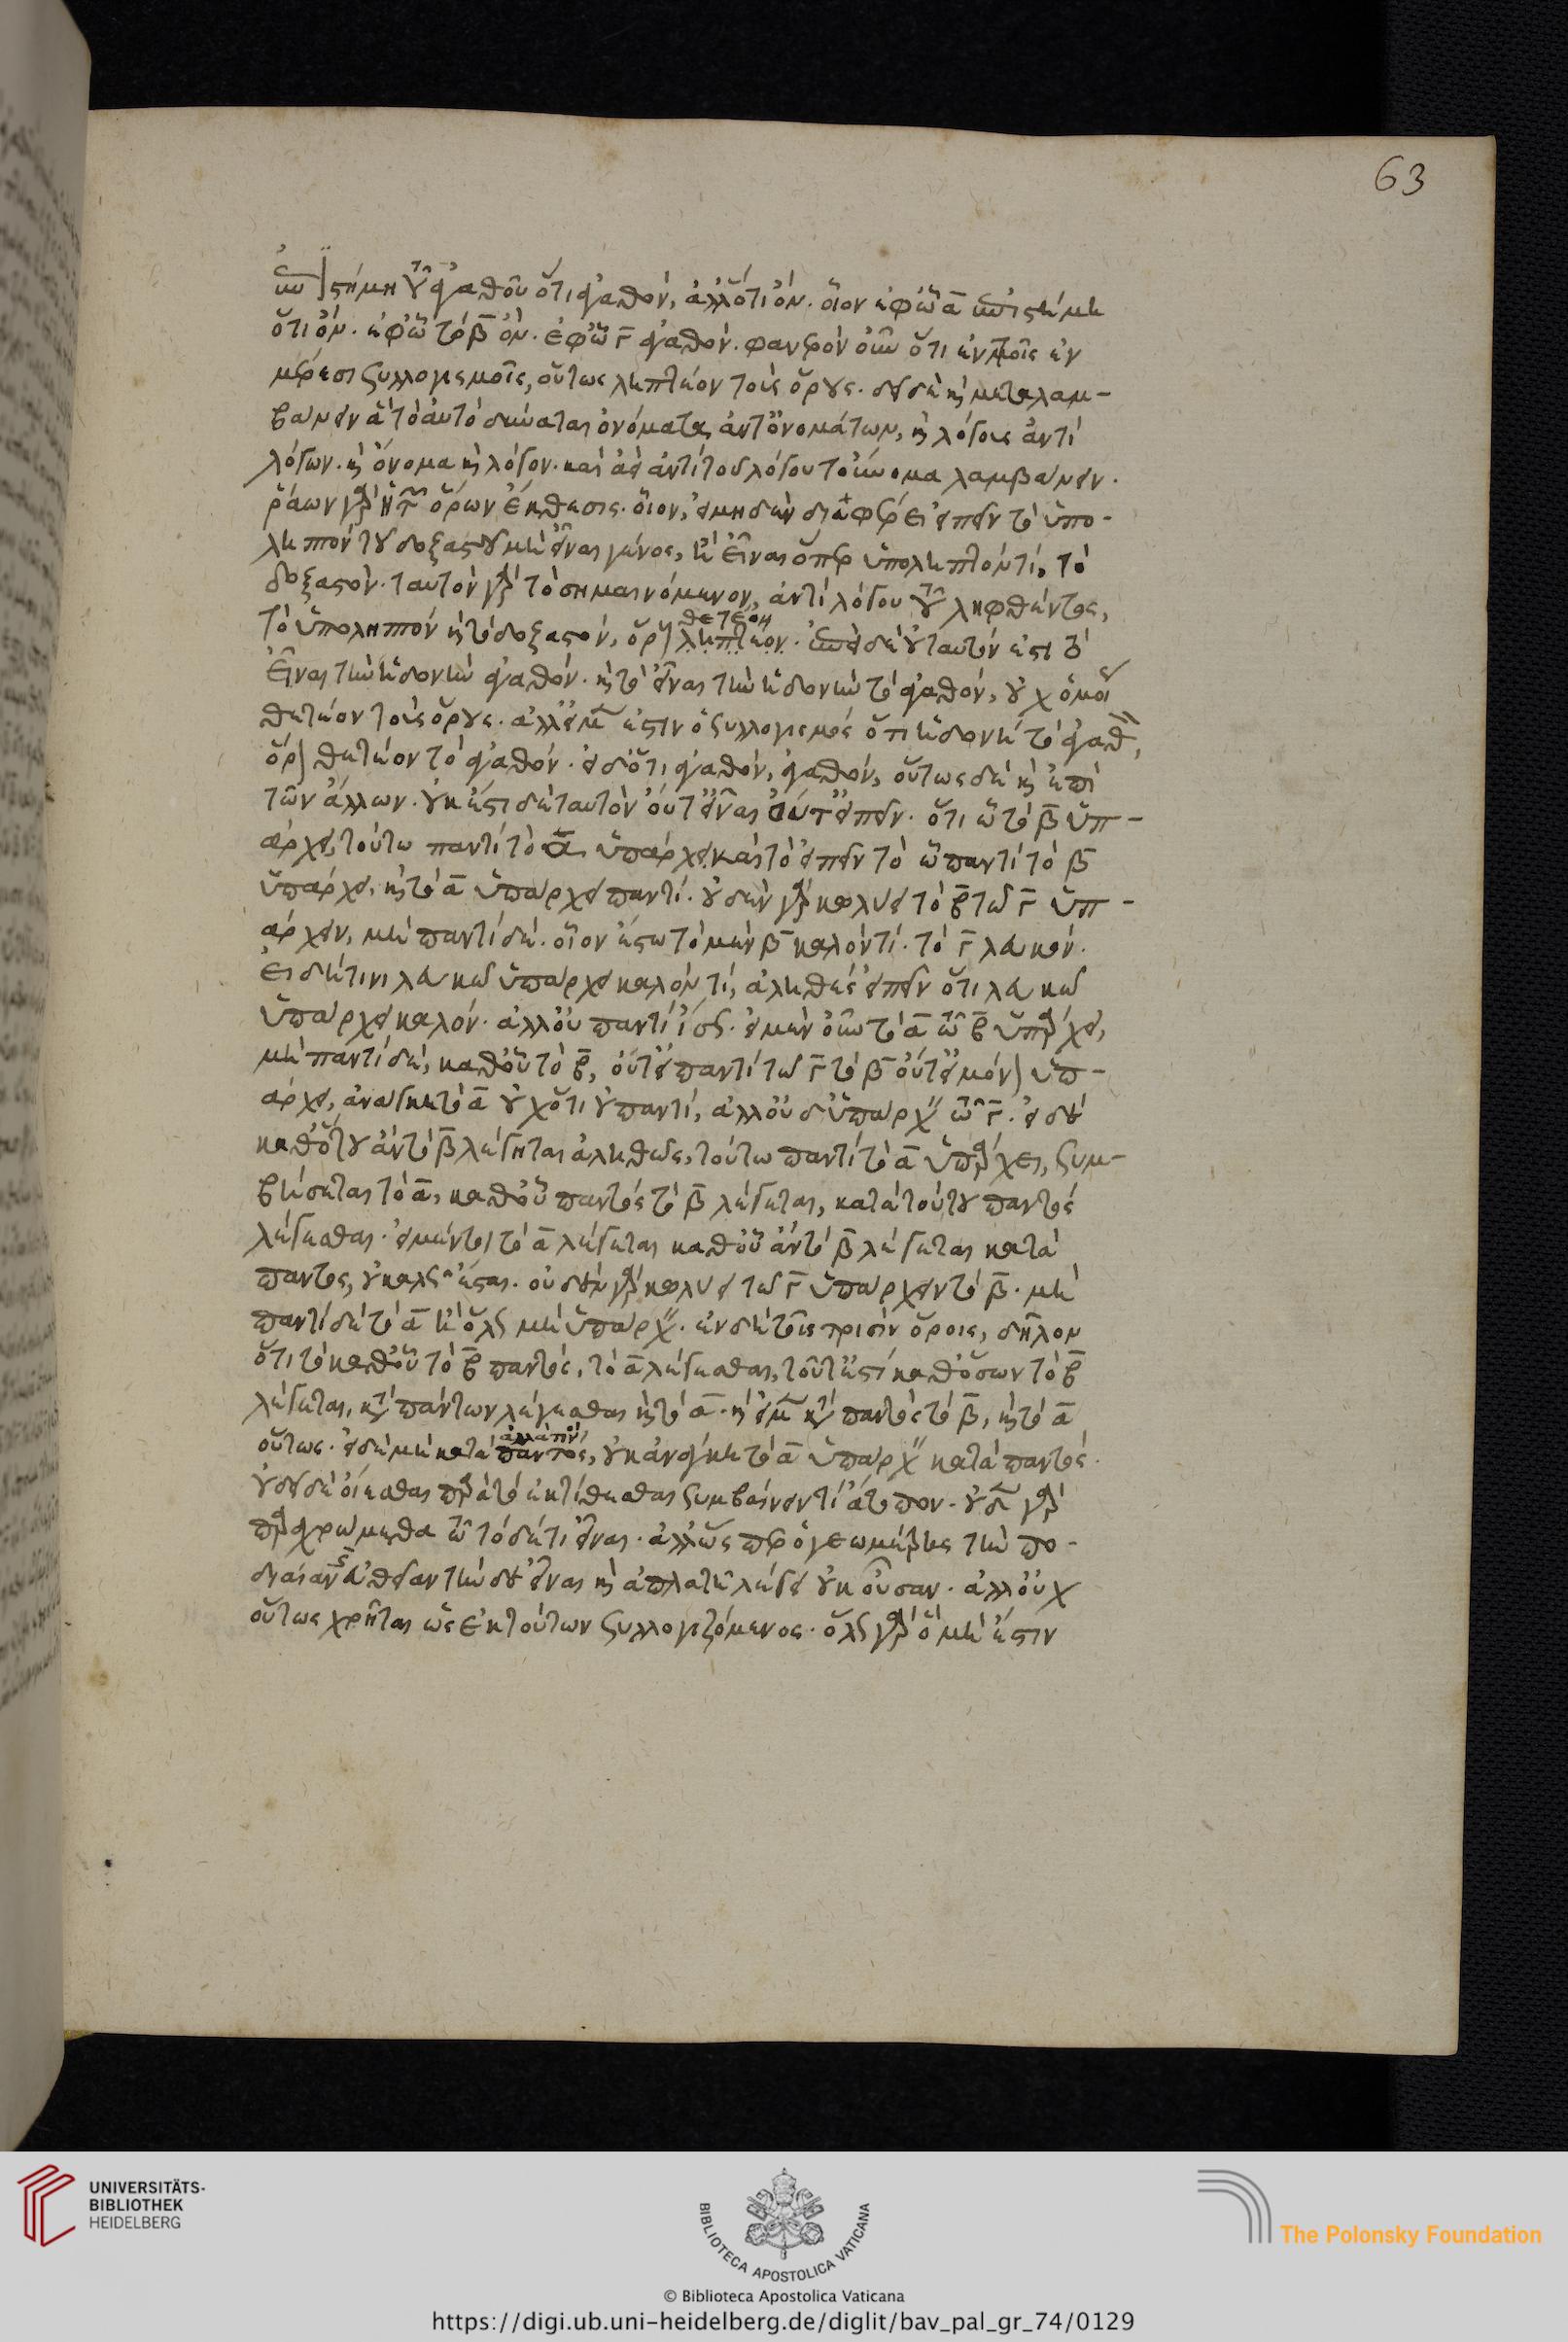 ἐπιστήμη τοῦ ἀγαθοῦ ὅτι ἀγαθόν, ἀλλ' ὅτι ὄν. οἷον ἐφ' ᾧ α ἐπιστήμη
ὅτι ὄν. ἐφ' ᾧ τὸ β ὄν. ἐφ' ᾧ γ ἀγαθόν. φανερὸν οὖν ὅτι ἐν τοῖς ἐν
μέρεσι συλλογισμοῖς, οὕτως ληπτέον τοὺς ὅρους. δεῖ δὲ καὶ μεταλαμ-
βάνειν ἃ τὸ αὐτὸ δύναται ὀνόματα ἀντ' ὀνομάτων, καὶ λόγους ἀντὶ
λόγων. καὶ ὄνομα καὶ λόγον. καὶ ἀεὶ ἀντὶ τοῦ λόγου τοὔνομα λαμβάνειν.
ῥάων γὰρ ἡ τῶν ὅρων ἔκθεσις. οἷον, εἰ μηδὲν διαφέρει εἰπεῖν τὸ ὑπο-
ληπτὸν τοῦ δοξαστοῦ μὴ εἶναι γένος, ἢ εἶναι ὅπερ ὑποληπτόν τι, τὸ
δοξαστόν. ταυτὸν γὰρ τὸ σημαινόμενον, ἀντὶ λόγου τοῦ ληφθέντος,
τὸ ὑποληπτὸν καὶ τὸ δοξαστόν, ὅρους θετέον ληπτέον. ἐπεὶ δὲ οὐ ταυτόν ἐστι τὸ
εἶναι τὴν ἡδονὴν ἀγαθόν. καὶ τὸ εἶναι τὴν ἡδονὴν τὸ ἀγαθόν, οὐχ ὁμοίως
θετέον τοὺς ὅρους. ἀλλ' εἰ μέν ἐστιν ὁ συλλογισμὸς ὅτι ἡ ἡδονὴ τὸ ἀγαθόν,
ὅρον θετέον τὸ ἀγαθόν. εἰ δ' ὅτι ἀγαθόν, ἀγαθόν, οὕτως δὲ καὶ ἐπὶ
τῶν ἄλλων. οὐκ ἔστι δὲ ταυτὸν οὔτ' εἶναι οὔτ' εἰπεῖν. ὅτι ᾧ τὸ β ὑπ-
άρχει, τούτω παντὶ τὸ α ὑπάρχει καὶ τὸ εἰπεῖν τὸ ᾧ παντὶ τὸ β
ὑπάρχει, καὶ τὸ α ὑπάρχει παντί. οὐδὲν γὰρ κωλύει τὸ β τῶ γ ὑπ-
άρχειν, μὴ παντὶ δέ. οἷον ἔστω τὸ μὲν β καλόν τι. τὸ γ λευκόν.
εἰ δή τινι λευκῶ ὑπάρχει καλόν τι, ἀληθὲς εἰπεῖν ὅτι λευκῶ
ὑπάρχει καλόν. ἀλλ' οὐ παντὶ ἴσως. εἰ μὲν οὖν τὸ α τῶ β ὑπάρχει,
μὴ παντὶ δέ, καθ' οὗ τὸ β, οὔτ' εἰ παντὶ τῶ γ τὸ β οὔτ' εἰ μόνον ὑπ-
άρχει, ἀνάγκη τὸ α οὐχ ὅτι οὐ παντί, ἀλλ' οὐδ' ὑπάρχειν τῶ γ. εἰ δὲ
καθ' ὅτου ἂν τὸ β λέγηται ἀληθῶς, τούτω παντὶ τὸ α ὑπάρχει, συμ-
βήσεται τὸ α, καθ' οὗ παντὸς τὸ β λέγεται, κατὰ τούτου παντὸς
λέγεσθαι. εἰ μέντοι τὸ α λέγεται καθ' οὗ ἂν τὸ β λέγεται κατὰ
παντός, οὐδὲν γὰρ κωλύει τῶ γ ὑπάρχειν τὸ β. μὴ
παντὶ δὲ τὸ α ἢ ὅλως μὴ ὑπάρχειν. ἐν δὲ τοῖς τρισὶν ὅροις, δῆλον
ὅτι τὸ καθ' οὗ τὸ β παντός, τὸ α λέγεσθαι, τοῦτ' ἔστι καθ' ὅσων τὸ β
λέγεται, κατὰ πάντων λέγεσθαι καὶ τὸ α. καὶ εἰ μὲν κατὰ παντὸς τὸ β, καὶ τὸ α
οὕτως. εἰ δὲ μὴ κατὰ παντός, οὐκ ἀνάγκη τὸ α ὑπάρχειν κατὰ παντός.
οὐ δεῖ δὲ οἴεσθαι παρὰ τὸ ἐκτίθεσθαι συμβαίνειν τι ἄτοπον. οὐδὲν γὰρ
προσχρώμεθα τῶ τόδε τι εἶναι. ἀλλ' ὥσπερ ὁ γεωμέτρης τὴν πο-
διαίαν καὶ εὐθεῖαν τήνδε εἶναι καὶ ἀπλατῆ λέγει οὐκ οὖσαν. ἀλλ' οὐχ
οὕτως χρῆται ὡς ἐκ τούτων συλλογιζόμενος. ὅλως γὰρ ὃ μὴ ἔστιν
63
UNIVERSITÄTS-
BIBLIOTHEK
HEIDELBERG
BIBLIOTECA APOSTOLICA VATICANA
The Polonsky Foundation
© Biblioteca Apostolica Vaticana
https://digi.ub.uni-heidelberg.de/diglit/bav_pal_gr_74/0129